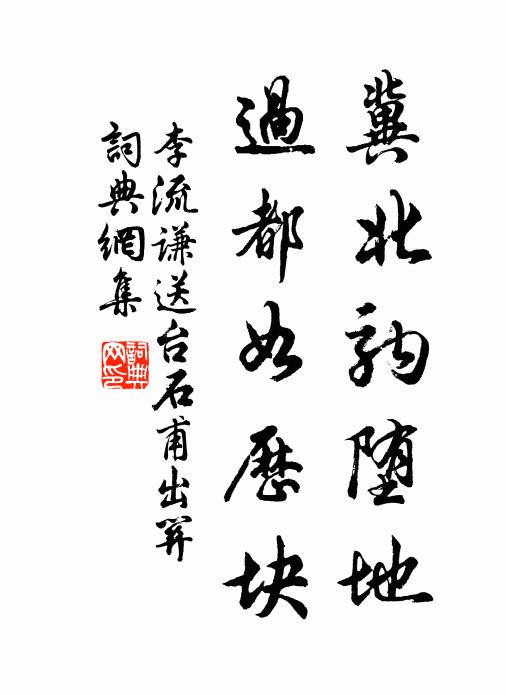 冀北駒堕地
過都如歷块
李流谦送台石甫出関
詞典網集
詞典网印